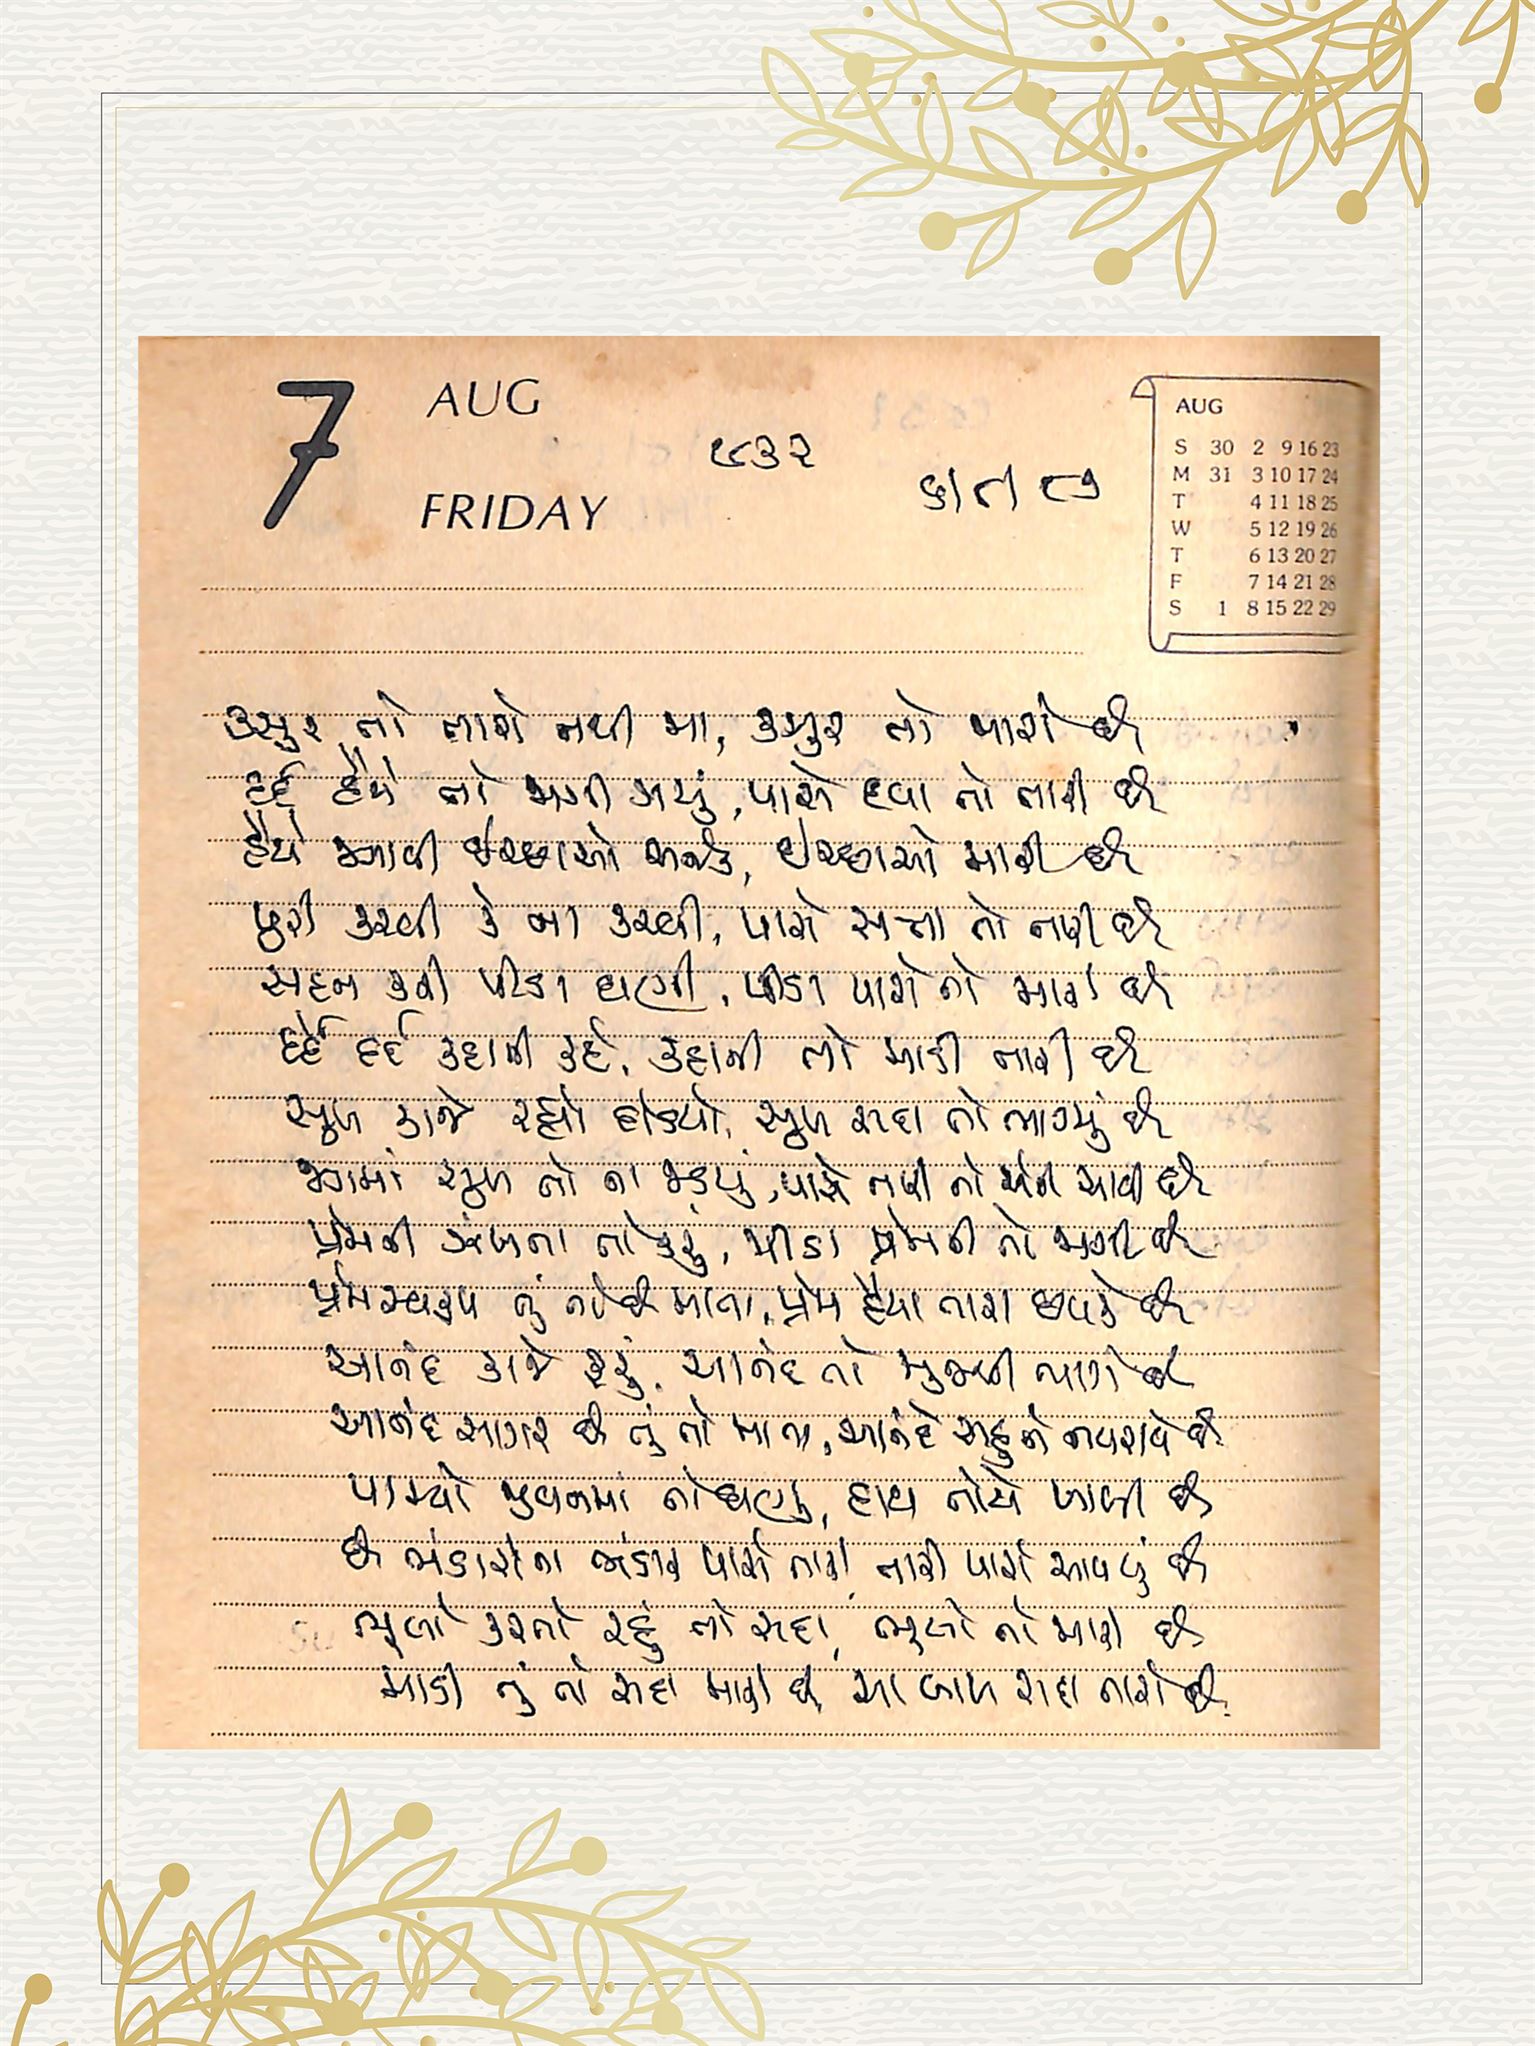 7
AUG
FRIDAY
૧૮૩૨
૬/૮/૮૭
AUG
S 30 2 9 16 23
M 31 3 10 17 24
T 4 11 18 25
W 5 12 19 26
T 6 13 20 27
F 7 14 21 28
S 1 8 15 22 29
કસુર તો તારો નથી મા, કસુર તો મારો છે
દર્દ હૈયે તો જાગી ગયું, પાસે દવા તો તારી છે
હૈયે જાગી ઈચ્છાઓ અનેક, ઈચ્છાઓ મારી છે
પૂરી કરવી કે ના કરવી, પાસે સત્તા તો તારી છે
સહન કરી પીડા ઘણી, પીડા પાસે તો મારી છે
દર્દે દર્દ કહાની કહે, કહાની તો માડી તારી છે
સુખ કાજે રહ્યો દોડયો, સુખ સદા તો ભાગ્યું છે
જગમાં સુખ તો ના જડયું, પાસે તારી તો એની ચાવી છે
પ્રેમની ઝંખના તો કરું, પીડા પ્રેમની તો જાગી છે
પ્રેમસ્વરૂપ તું તો છે માતા, પ્રેમ હૈયા તારા છલકે છે
આનંદ કાજે ફરું, આનંદ તો મુજથી ભાગે છે
આનંદ સાગર છે તું તો માતા, આનંદે સહુને નવરાવે છે
પામ્યો જીવનમાં તો ઘણું, હાથ તોયે ખાલી છે
છે ભંડારોના ભંડાર પાસે તારી, તારી પાસે આવવું છે
ભૂલો કરતો રહું તો સદા, ભૂલો તો મારી છે
માડી તું તો સદા મારી છે, આ બાળ સદા તારો છે